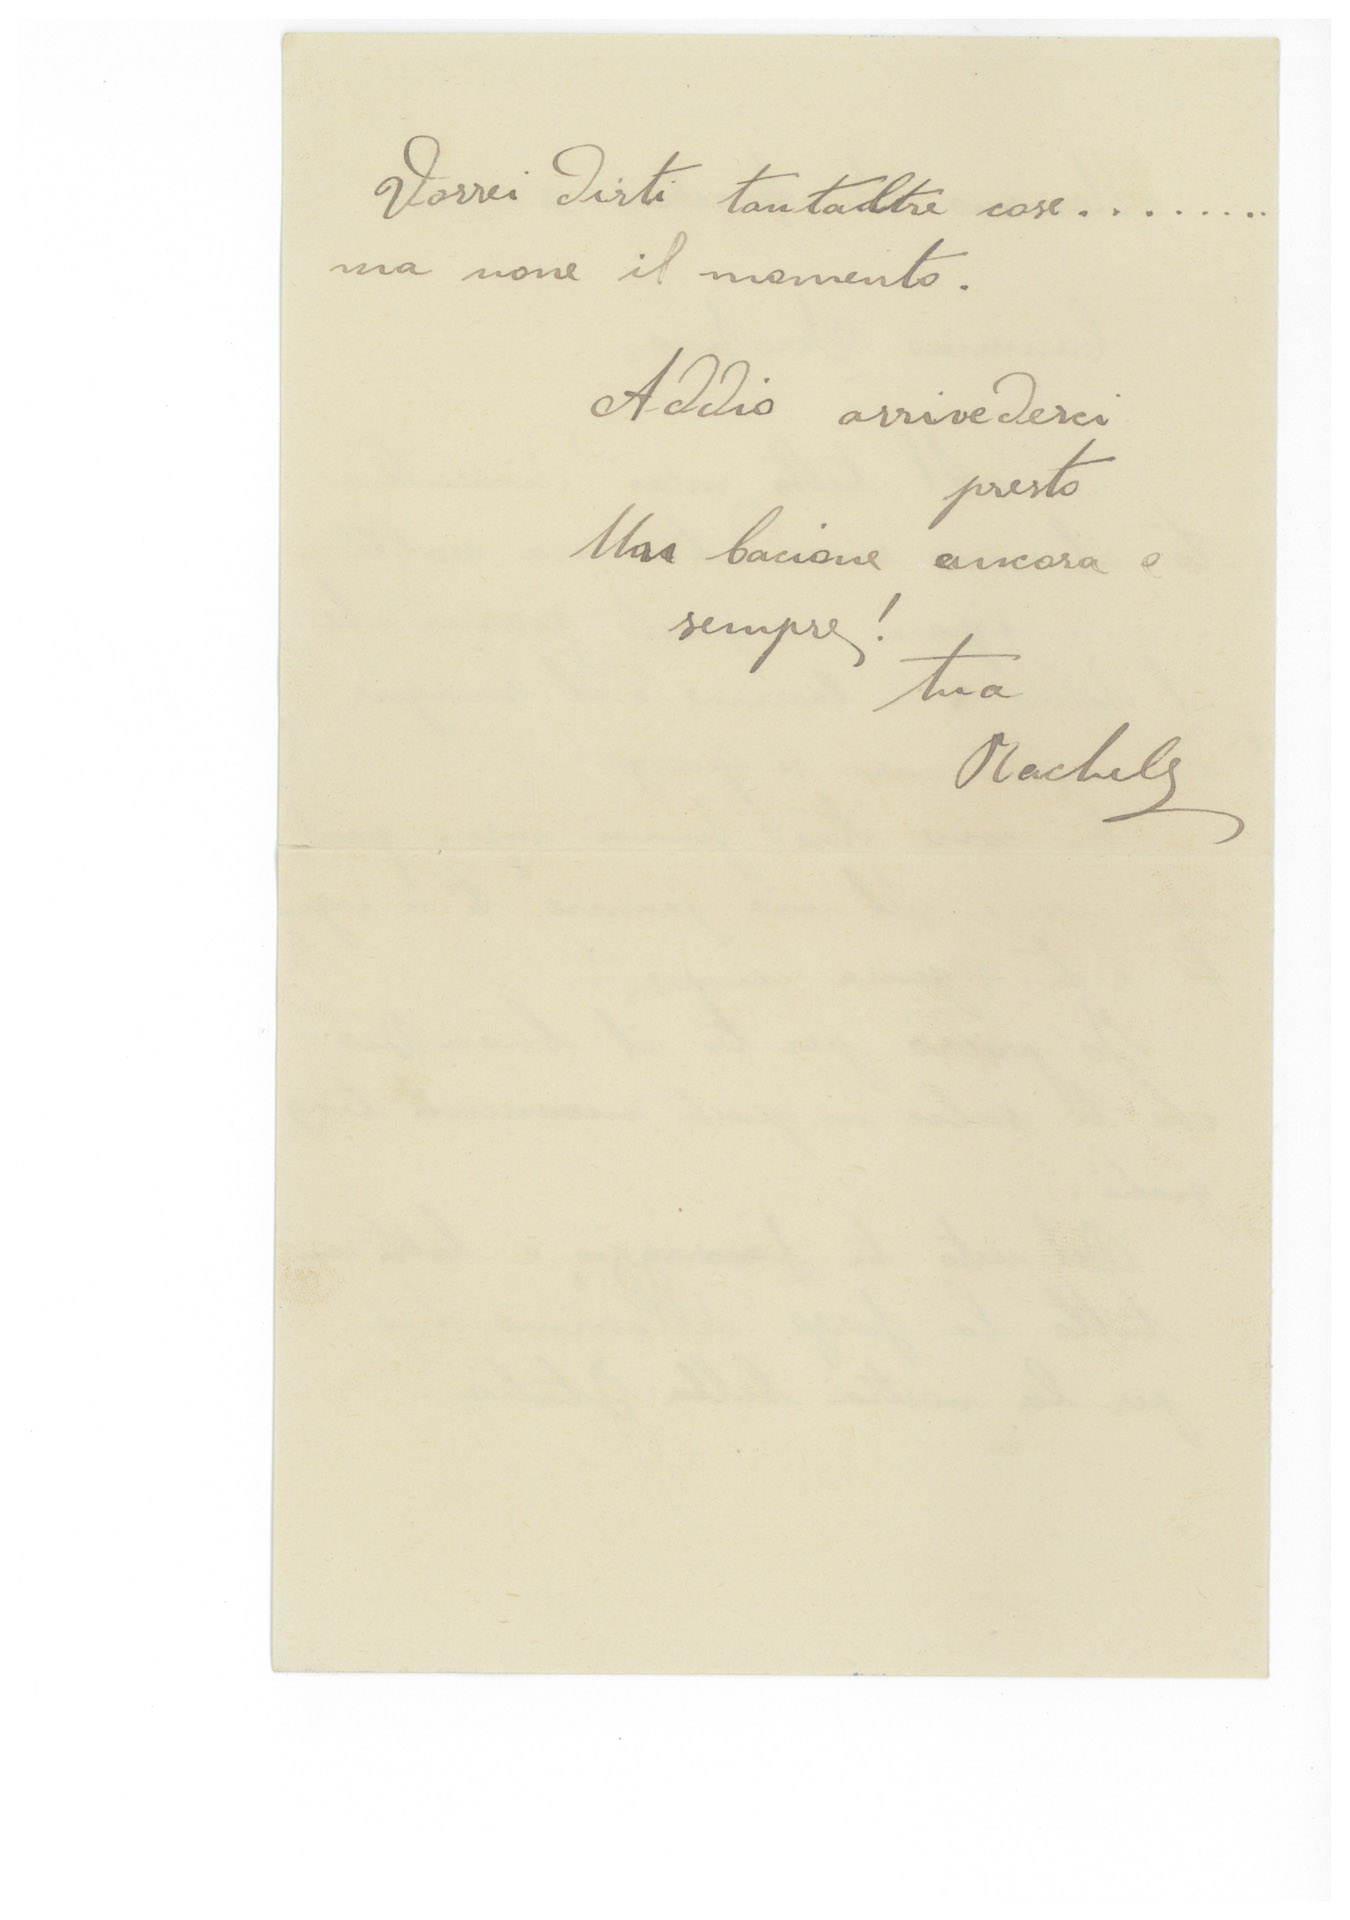 Vorrei dirti tantaltre cose.........
ma none il momento.
Addio arrivederci
presto
Un bacione ancora e
sempre!
tua
Rachele